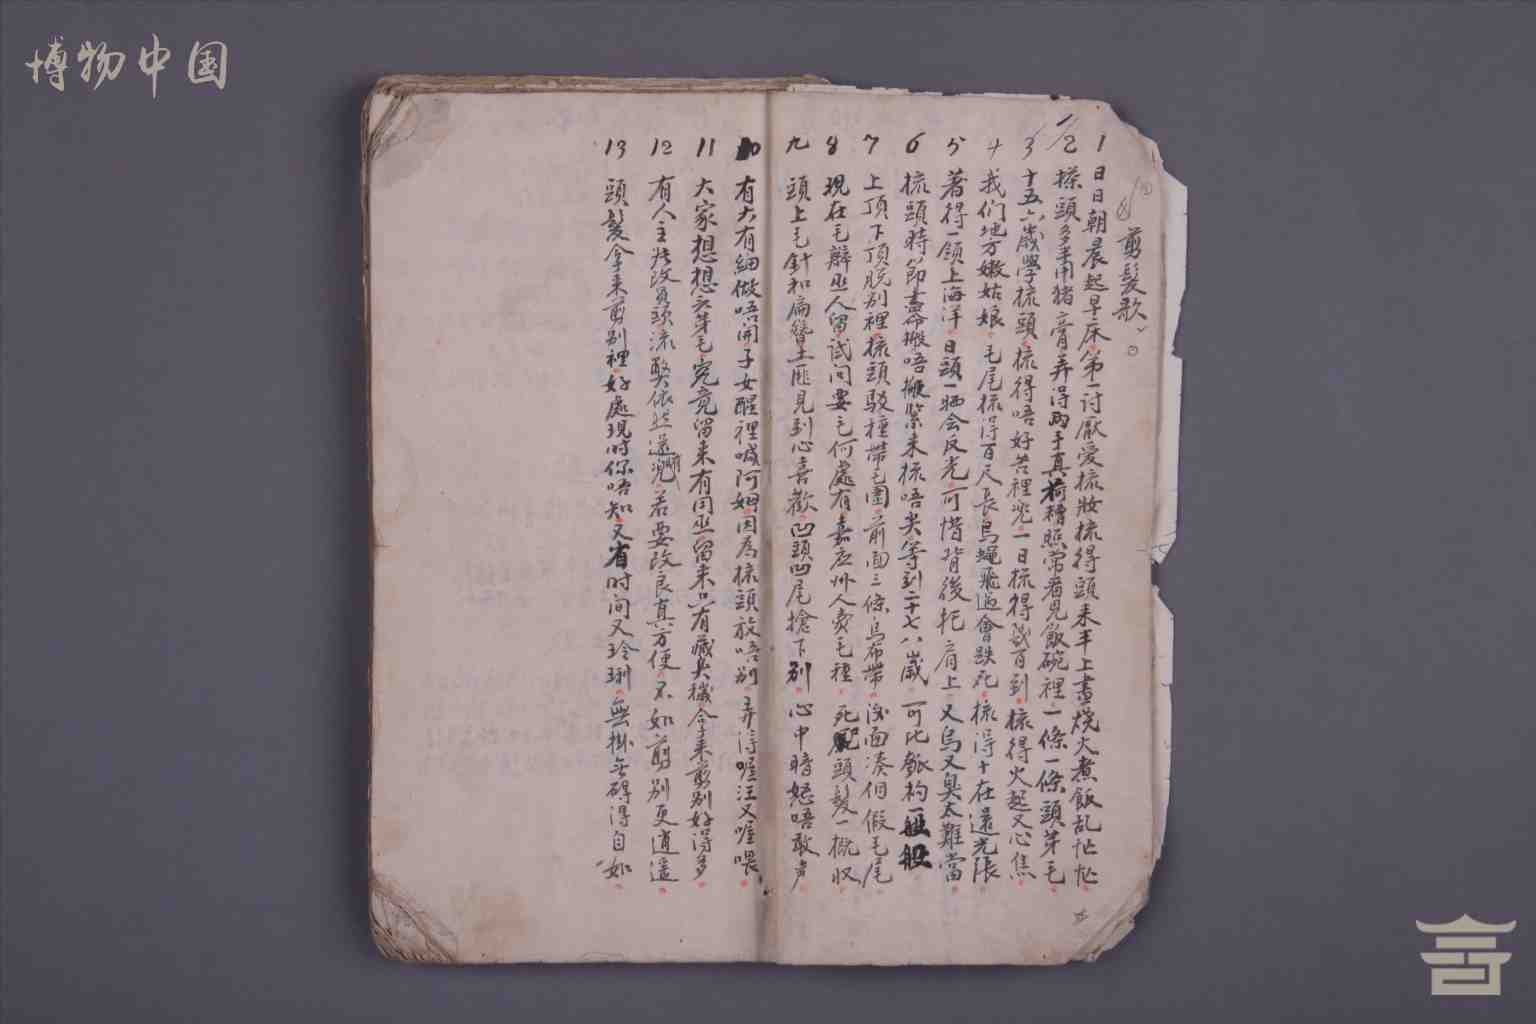 博物中国
剪髮歌
1 日日朝晨起早床 第一討厭愛梳妝 梳得頭来半上晝 燒火煮飯乱忙忙
2 梳頭多来用猪膏 弄得両手真 糟 照常看見飯碗裡 一條一條頭芽毛
3 十五六歲學梳頭 梳得唔好苦裡兜 一日梳得幾百到 梳得火起又心焦
4 我们地方嫩姑娘 毛尾梳得百尺長 烏蠅飛過會跌死 梳得十在還光張
5 著得一領上海洋 日頭一晒会反光 可惜背後 肩上 又烏又臭太難當
6 梳頭時節 搬唔 緊来梳唔 等到二十七八歲 可比 一般般
7 上頂下頂脱别裡 梳頭駁種帶毛圍 前面三條烏布帶 後面湊個假毛尾
8 現在毛辮巫人留 試问要毛何處有 嘉应州人賣毛種 死 頭髮一概収
九 頭上毛針和扁簪 土匪見到心喜歡 凹頭凹尾搶下别 心中暗怒唔敢声
10 有大有細做唔開 子女醒裡喊阿姆 因為梳頭放唔别 弄得喔汪又喔喂
11 大家想想 芽毛 究竟留来有用巫 留来只有藏 拿来剪别好得多
12 有人主张改員頭 依然還 若要改良真方便 不如剪别更逍遥
13 頭髮拿来剪别裡 好處現时你唔知 又省时间又玲琍 無掛無碍得自如